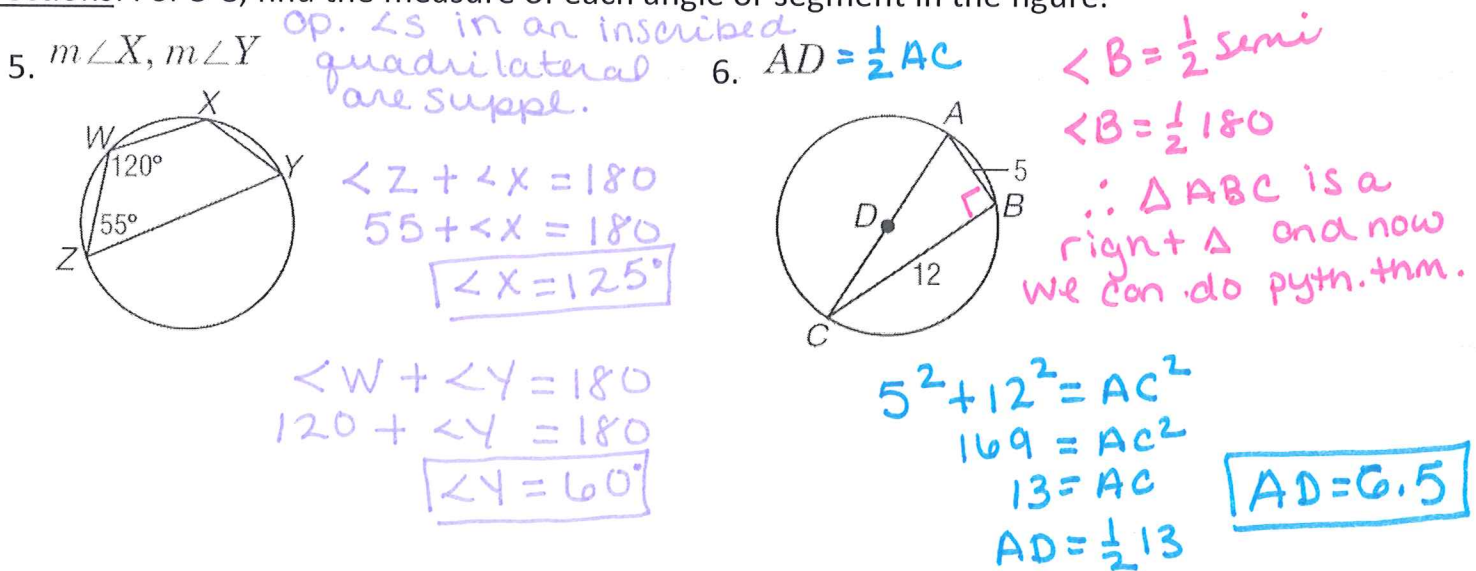 find the measure of each angle or segment in the figure.
5. m∠X, m∠Y
op. ∠s in an inscribed
quadrilateral
are suppl.
X
W
120°
Y
55°
Z
<Z + <X = 180
55 + <X = 180
<X = 125°
<W + <Y = 180
120 + <Y = 180
∠Y = 60°
6. AD = 1/2 AC
A
5
B
D
12
C
<B = 1/2 semi
<B = 1/2 180
∴ Δ ABC is a
right Δ and now
we can do pyth. thm.
5² + 12² = AC²
169 = AC²
13 = AC
AD = 1/2 13
AD = 6.5